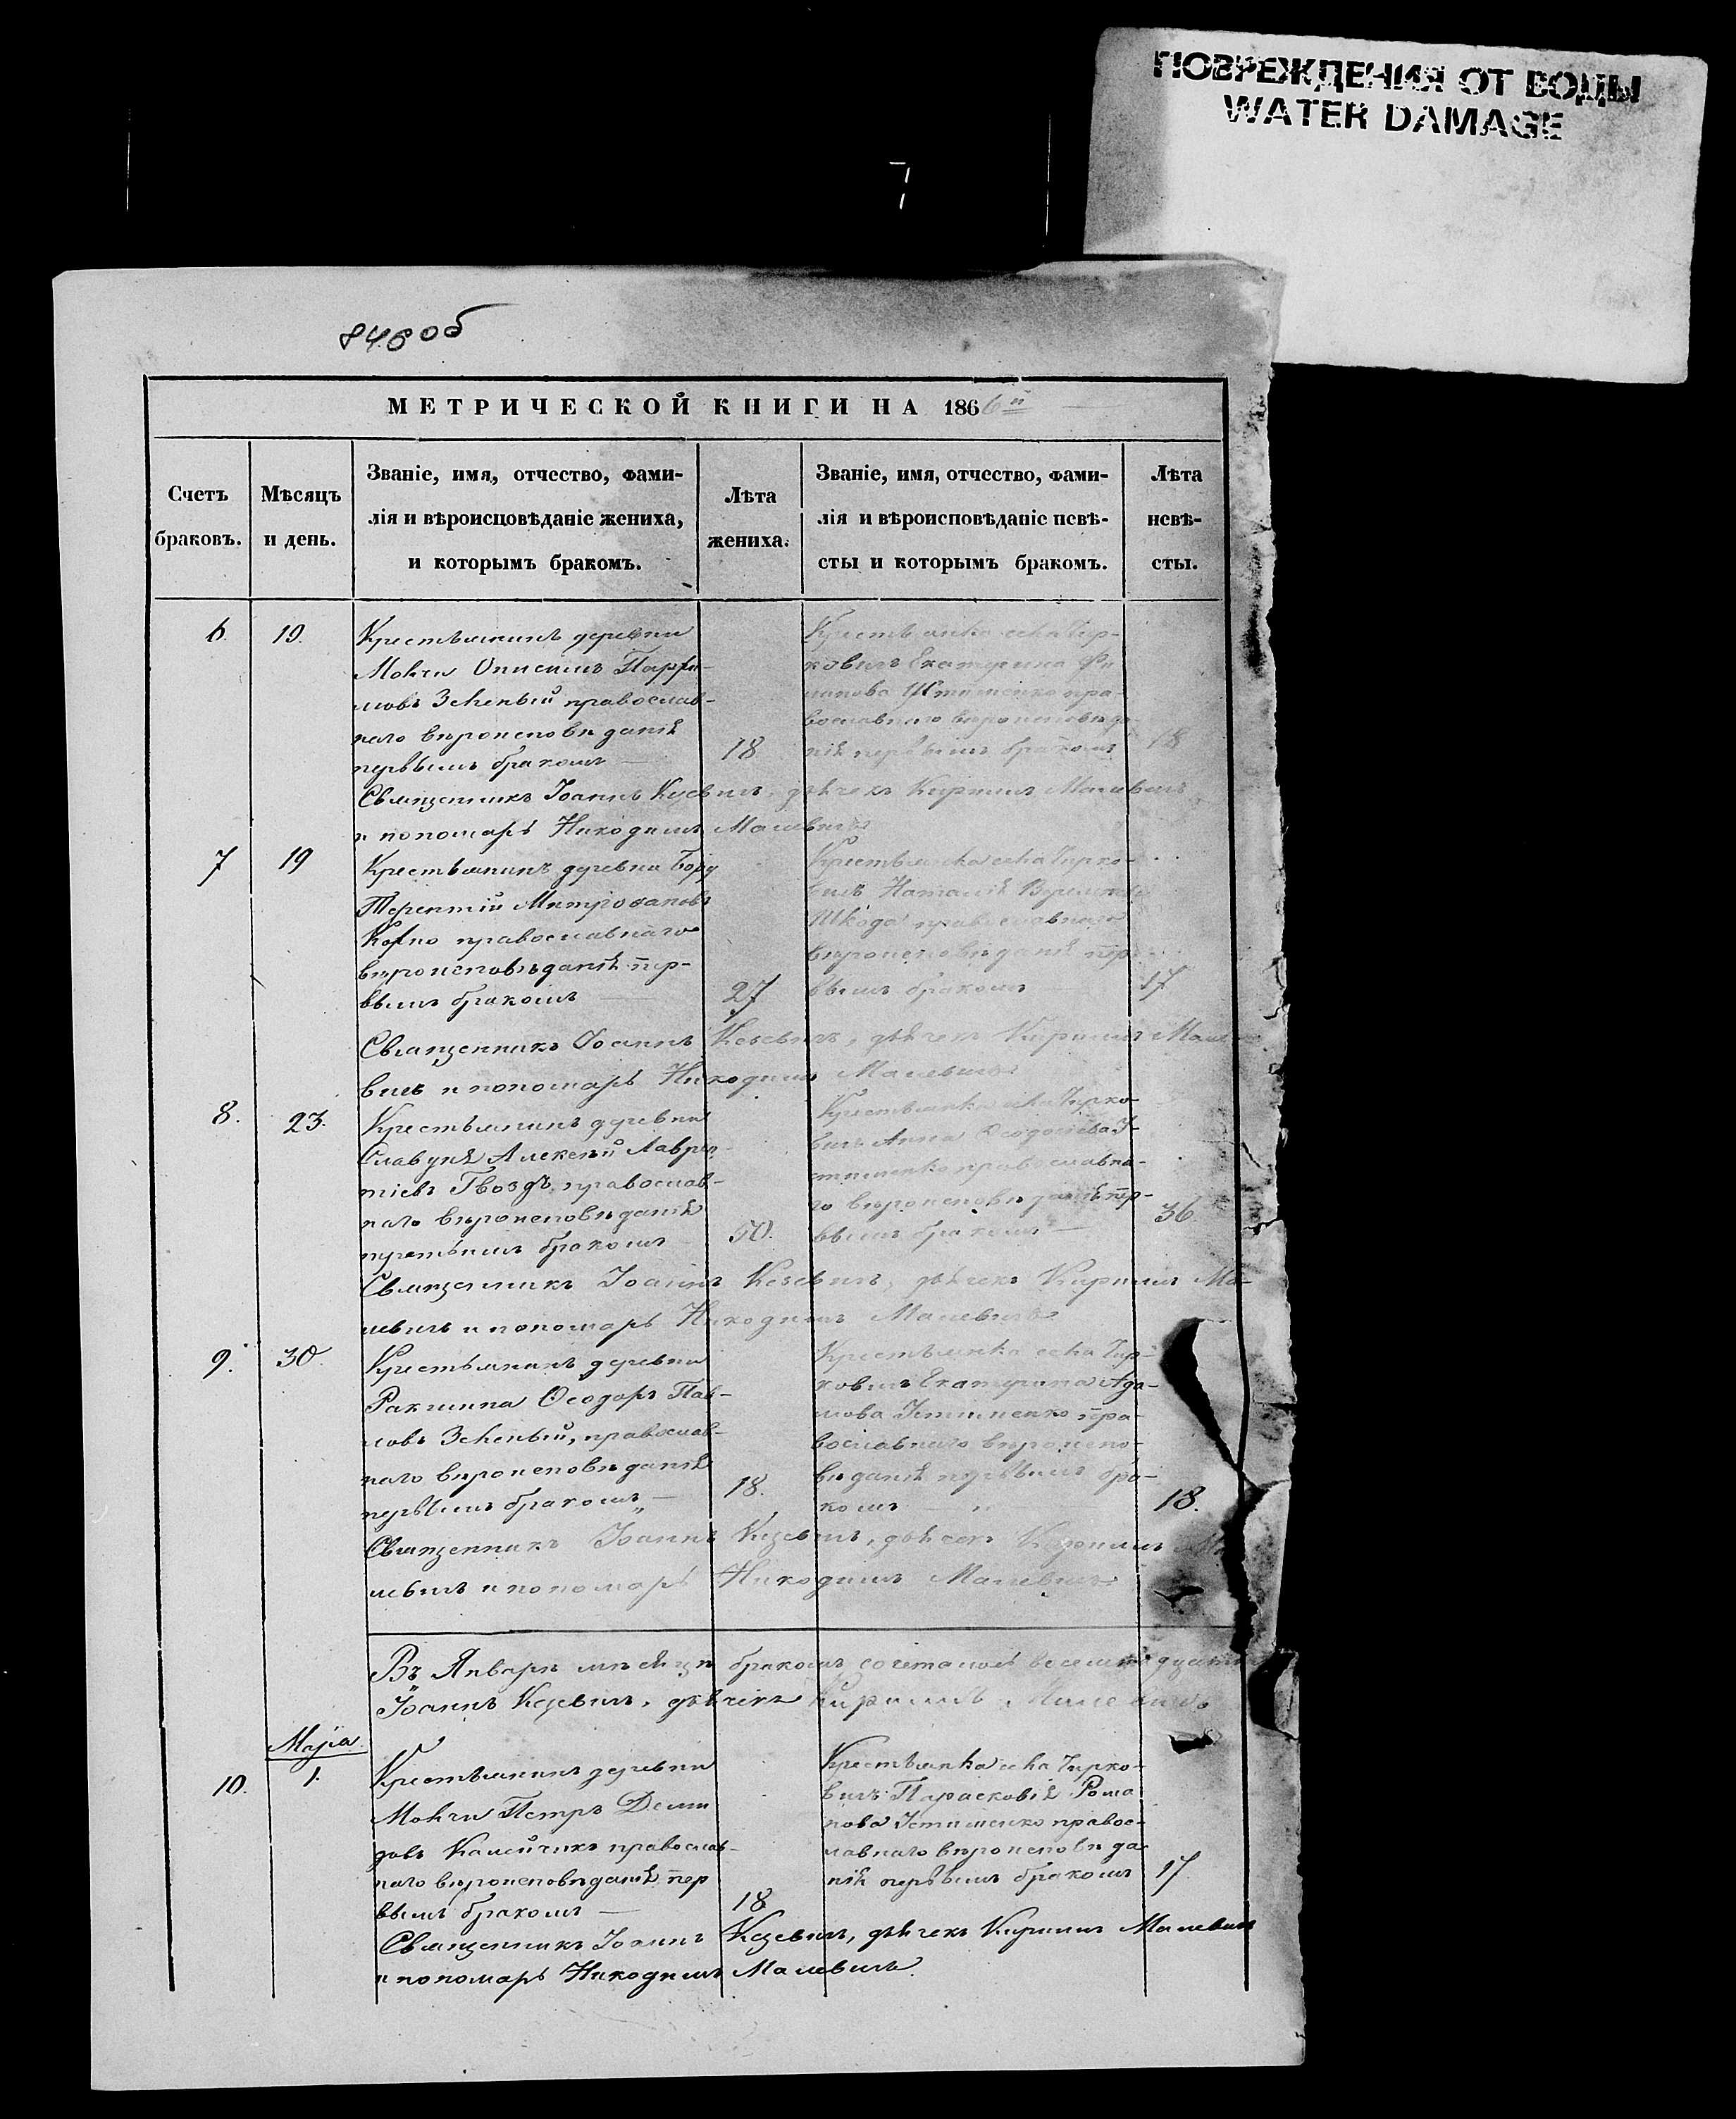 ПОВРЕЖДЕНИЯ ОТ ВОДЫ
WATER DAMAGE
848об
МЕТРИЧЕСКОЙ КНИГИ НА 1866й
Счетъ браковъ.
Мѣсяцъ и день.
Званіе, имя, отчество, фами-
лія и вѣроисповѣданіе жениха,
и которымъ бракомъ.
Лѣта жениха.
Званіе, имя, отчество, фами-
лія и вѣроисповѣданіе невѣ-
сты и которымъ бракомъ.
Лѣта невѣ-
сты.
6. 19.
Крестьянинъ деревни
Онисимъ Парфе-
новъ Зеленый православ-
наго вѣроисповѣданія
первымъ бракомъ
18
Крестьянка села Чир-
ковичъ Екатерина Фи
липова православнаго вѣроисповѣда-
нія первымъ бракомъ
18
Священникъ Іоаннъ Кузевичъ, дьячекъ Кириллъ Малевичъ
и пономарь Никодимъ Малевичъ
7 19
Крестьянинъ деревни
Терентій Митрофановъ
православнаго
вѣроисповѣданія пер-
вымъ бракомъ
27
Крестьянка села Чирко-
вичъ Наталія
Шкода православнаго
вѣроисповѣданія пер-
вымъ бракомъ
17
Священникъ Іоаннъ дьячекъ Кириллъ Мале-
вичъ и пономарь Никодимъ Малевичъ
8. 23.
Крестьянинъ деревни
Алексѣй Лаврен-
тіевъ Гвоздь православ-
наго вѣроисповѣданія
третьимъ бракомъ
50.
Крестьянка села Чирко-
вичъ Анна Ѳеодосіева У-
стименко православна-
го вѣроисповѣданія пер-
вымъ бракомъ
36.
Священникъ Іоаннъ дьячекъ Кириллъ Ма-
левичъ и пономарь Никодимъ Малевичъ
9. 30.
Крестьянинъ деревни
Ракшина Ѳеодоръ Пав-
ловъ Зеленый, православ-
наго вѣроисповѣданія
первымъ бракомъ
18.
Крестьянка села Чир-
ковичъ Екатерина Ада-
мова Устименко пра-
вославнаго вѣроиспо-
вѣданія первымъ бра-
комъ
18.
Священникъ Іоаннъ дьячекъ Кириллъ Ма
левичъ и пономарь Никодимъ Малевичъ
Въ Январѣ мѣсяцѣ бракомъ сочеталось
Іоаннъ дьячекъ Кириллъ Малевичъ
Маія
10. 1.
Крестьянинъ деревни
Петръ Деми
довъ Калейчикъ православ-
наго вѣроисповѣданія пер
вымъ бракомъ
18
Крестьянка села Чирко-
вичъ Парасковія Рома
нова Устименко правос-
лавнаго вѣроисповѣда
нія первымъ бракомъ
17
Священникъ Іоаннъ дьячекъ Кириллъ Малевичъ
и пономарь Никодимъ Малевичъ.